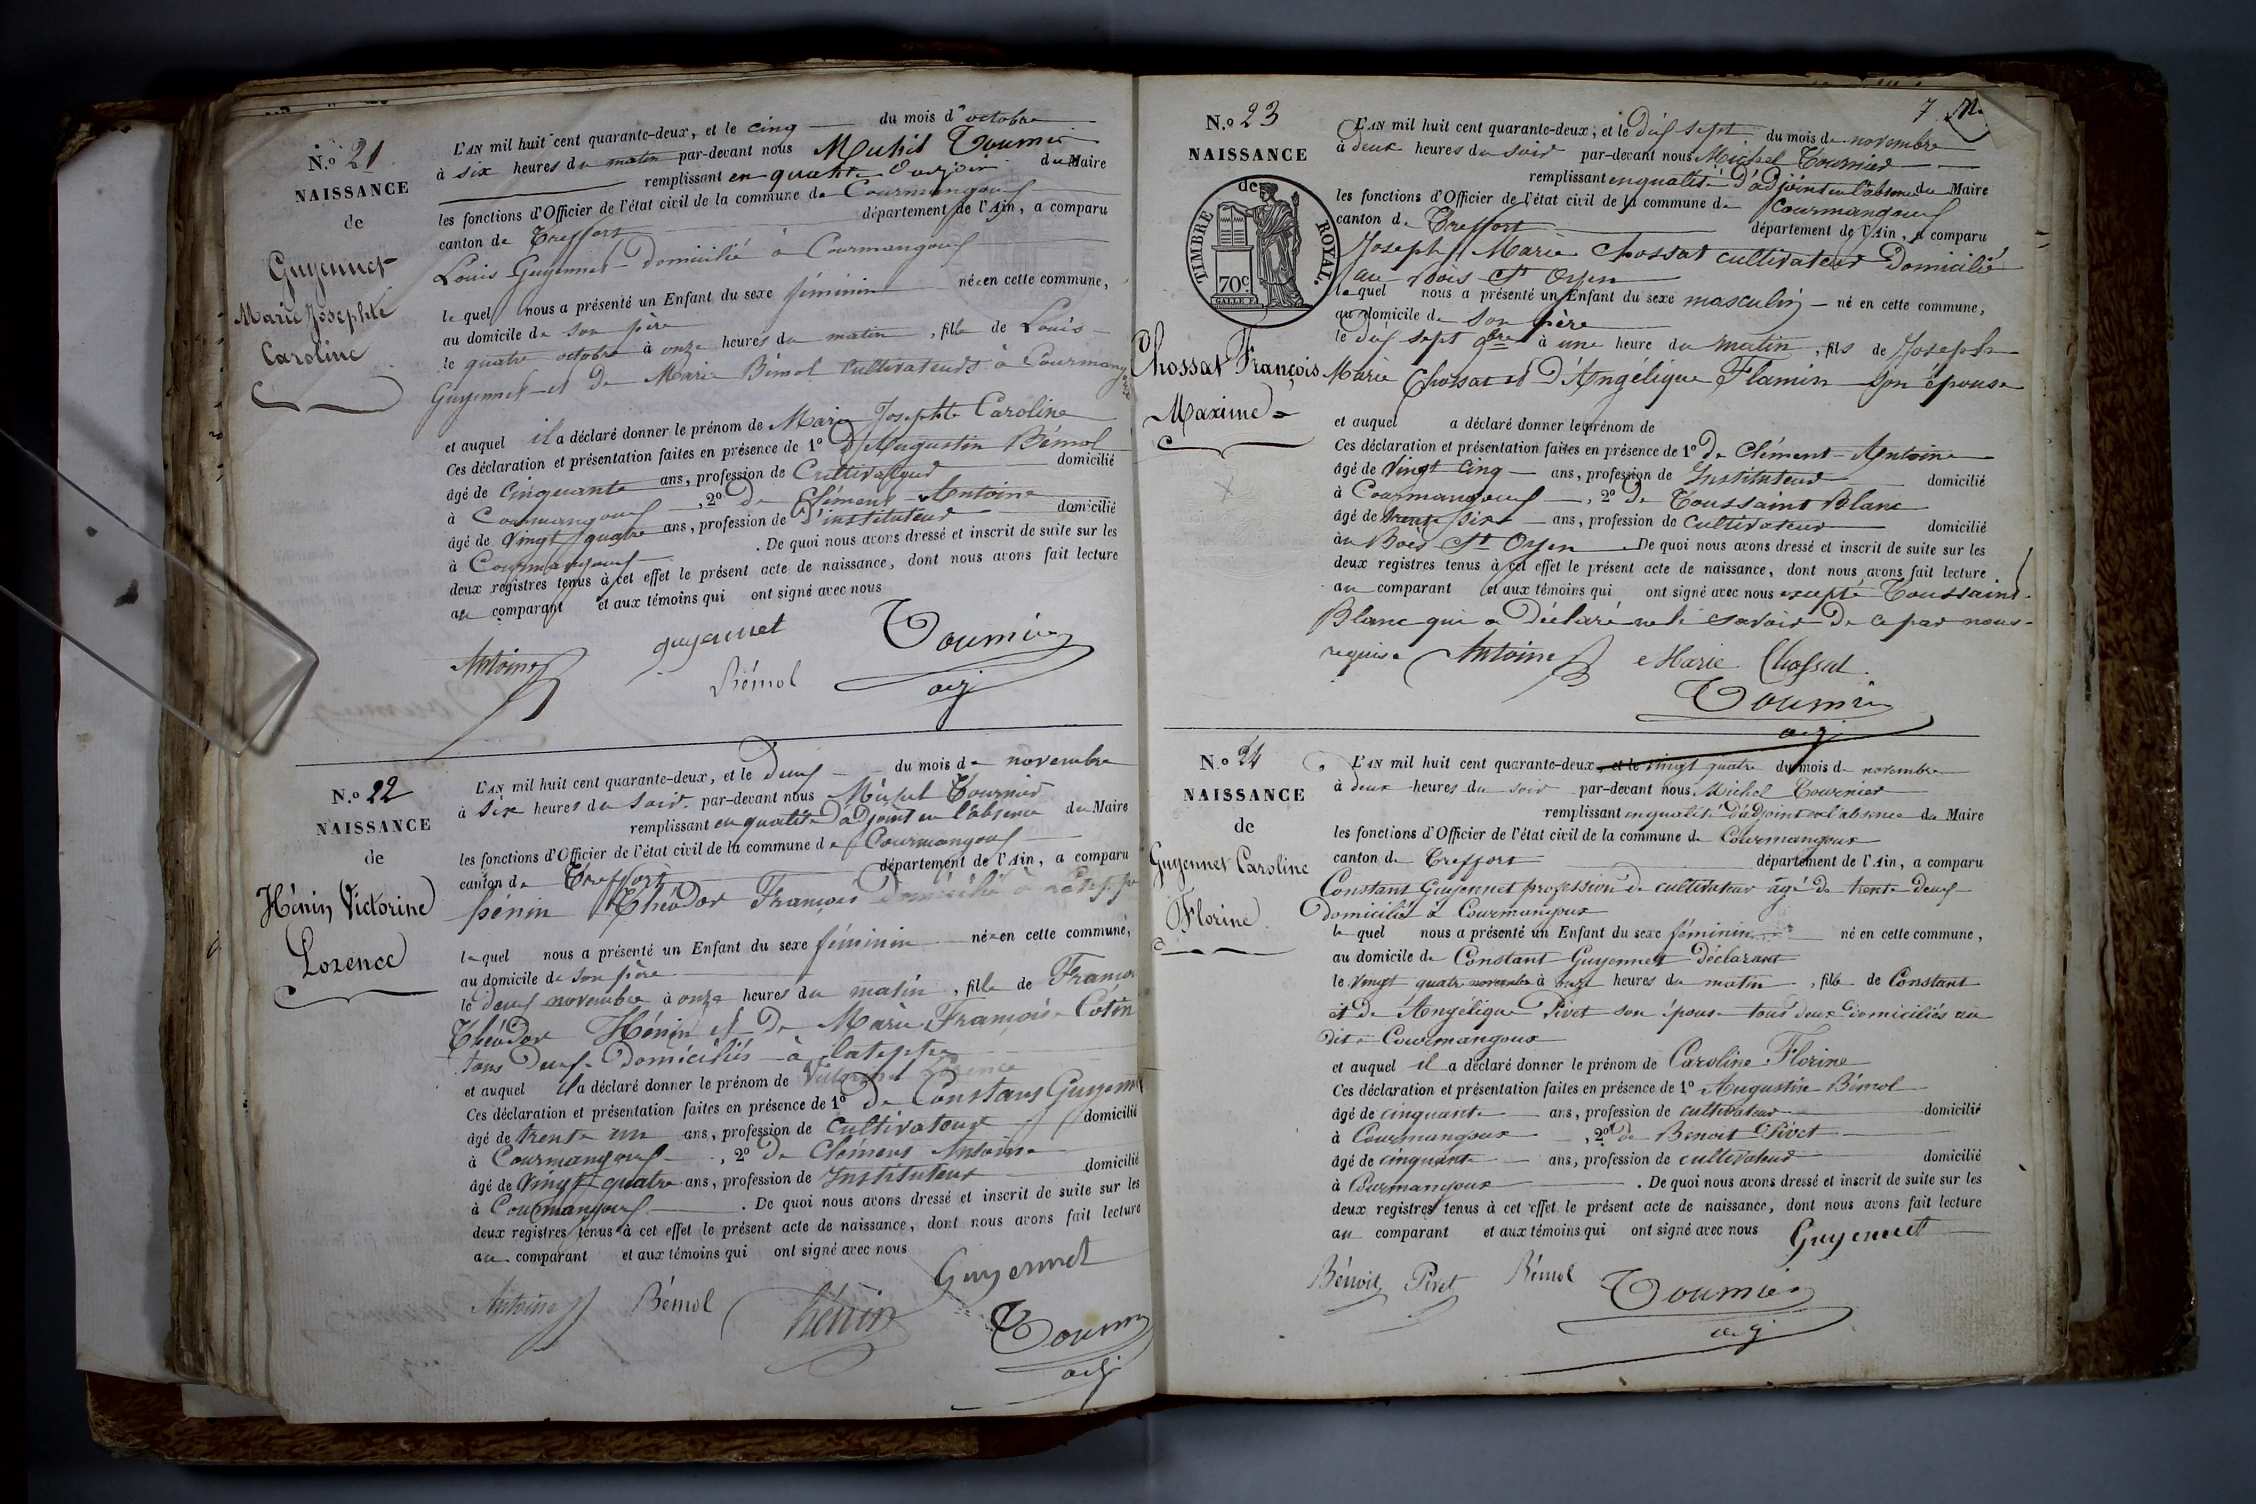 N.º 21
NAISSANCE
de
Guyennet
Marie Josephte
Caroline
L'AN mil huit cent quarante-deux, et le cinq du mois d'octobre
à six heures du matin par-devant nous Michel Tournier
remplissant en qualité d'adjoint du Maire
les fonctions d'Officier de l'état civil de la commune de Courmangoux
canton de Treffort département de l'Ain, a comparu
Louis Guyennet domicilié à Courmangoux
lequel nous a présenté un Enfant du sexe féminin née en cette commune,
au domicile de son père
le quatre octobre à onze heures du matin, fille de Louis
Guyennet et de Marie Bémol cultivateurs à Courmangoux
et auquel il a déclaré donner le prénom de Marie Josephte Caroline
Ces déclaration et présentation faites en présence de 1º d'Augustin Bémol
âgé de cinquante ans, profession de Cultivateur domicilié
à Courmangoux, 2º de Clémens Antoine
âgé de vingt quatre ans, profession de d'instituteur domicilié
à Courmangoux. De quoi nous avons dressé et inscrit de suite sur les
deux registres tenus à cet effet le présent acte de naissance, dont nous avons fait lecture
au comparant et aux témoins qui ont signé avec nous
Antoine guyennet Bémol Tournier
adj
N.º 22
NAISSANCE
de
Hénin Victorine
Lorence
L'AN mil huit cent quarante-deux, et le deux du mois de novembre
à six heures du soir par-devant nous Michel Tournier
remplissant en qualité d'adjoint en l'absence du Maire
les fonctions d'Officier de l'état civil de la commune de Courmangoux
canton de Treffort département de l'Ain, a comparu
hénin Théodor François domicilié à
lequel nous a présenté un Enfant du sexe féminin née en cette commune,
au domicile de son père
le deux novembre à onze heures du matin, fille de François
Théodor Hénin et de Marie Françoise Cotin
tous deux domiciliés à lateppe
et auquel il a déclaré donner le prénom de Victorine Lorence
Ces déclaration et présentation faites en présence de 1º de Constans Guyennet
âgé de trente un ans, profession de cultivateur domicilié
à Courmangoux, 2º de Clémens Antoine
âgé de vingt quatre ans, profession de Instituteur domicilié
à Courmangoux. De quoi nous avons dressé et inscrit de suite sur les
deux registres tenus à cet effet le présent acte de naissance, dont nous avons fait lecture
au comparant et aux témoins qui ont signé avec nous
Antoine Bémol hénin Guyennet
Tournier
adj
7
N.º 23
NAISSANCE
de
TIMBRE ROYAL.
70c.
Chossat François
Maxime
L'AN mil huit cent quarante-deux, et le dix sept du mois de novembre
à deux heures du soir par-devant nous Michel Tournier
remplissant en qualité d'adjoint en l'absence du Maire
les fonctions d'Officier de l'état civil de la commune de Courmangoux
canton de Treffort département de l'Ain, a comparu
Joseph Marie Chossat cultivateur domicilié
au bois St Oyen
lequel nous a présenté un Enfant du sexe masculin né en cette commune,
au domicile de son père
le dix sept 9bre à une heure du matin, fils de Joseph
Marie Chossat et d'Angélique Flamin son épouse
et auquel a déclaré donner le prénom de
Ces déclaration et présentation faites en présence de 1º de Clémens Antoine
âgé de vingt cinq ans, profession de Instituteur domicilié
à Courmangoux, 2º de Toussaint Blanc
âgé de trente six ans, profession de cultivateur domicilié
au Bois St Oyen. De quoi nous avons dressé et inscrit de suite sur les
deux registres tenus à cet effet le présent acte de naissance, dont nous avons fait lecture
au comparant et aux témoins qui ont signé avec nous excepté Toussaint
Blanc qui a déclaré ne le savoir de ce par nous
requis. Antoine Marie Chossat
Tournier
adj
N.º 24
NAISSANCE
de
Guyennet Caroline
Florine
L'AN mil huit cent quarante-deux, et le vingt quatre du mois de novembre
à deux heures du soir par-devant nous Michel Tournier
remplissant en qualité d'adjoint en l'absence du Maire
les fonctions d'Officier de l'état civil de la commune de Courmangoux
canton de Treffort département de l'Ain, a comparu
Constant Guyennet profession de cultivateur âgé de trente deux
domicilié à Courmangoux
lequel nous a présenté un Enfant du sexe féminin né en cette commune,
au domicile de Constant Guyennet déclarant
le vingt quatre novembre à onze heures du matin, fille de Constant
et de Angélique Pivet son épouse tous deux domiciliés au
dit Courmangoux
et auquel il a déclaré donner le prénom de Caroline Florine
Ces déclaration et présentation faites en présence de 1º Augustin Bémol
âgé de cinquante ans, profession de cultivateur domicilié
à Courmangoux, 2º de Benoit Pivet
âgé de cinquante ans, profession de cultivateur domicilié
à Courmangoux. De quoi nous avons dressé et inscrit de suite sur les
deux registres tenus à cet effet le présent acte de naissance, dont nous avons fait lecture
au comparant et aux témoins qui ont signé avec nous Guyennet
Bénoit Pivet Bémol Tournier
adj